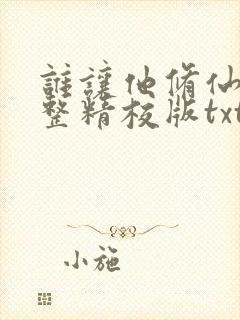 誰讓他脩仙
整精校版txt
小施